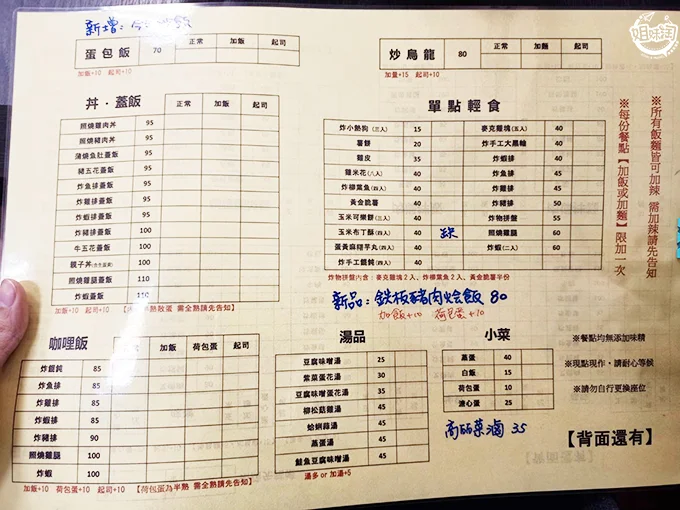 新增:
姐妹淘
蛋包飯 70 正常 加飯 起司
加飯+10 起司+10
炒烏龍 80 正常 加麵 起司
加量+15 起司+10
丼·蓋飯 正常 加飯 起司
照燒雞肉丼 95
照燒豬肉丼 95
蒲燒魚肚蓋飯 95
豬五花蓋飯 95
炸魚排蓋飯 95
炸雞排蓋飯 95
炸蝦排蓋飯 95
炸豬排蓋飯 100
牛五花蓋飯 100
親子丼 100
照燒雞腿蓋飯 110
炸蝦蓋飯 110
加飯+10 起司+10 需全熟請先告知】
單點輕食
炸小熱狗(三入) 15
薯餅 20
雞皮 35
雞米花(八入) 40
炸柳葉魚(四入) 40
黃金脆薯 40
玉米可樂餅(三入) 40
玉米布丁酥(四入) 40
蛋黃麻糬芋丸(四入) 40
炸手工餛飩(四入) 40
麥克雞塊(五入) 40
炸手工大黑輪 40
炸蝦排 40
炸魚排 45
炸雞排 45
炸豬排 50
炸物拼盤 55
照燒雞腿 60
炸蝦(二入) 60
炸物拼盤內含:麥克雞塊2入、炸柳葉魚2入、黃金脆薯半份
新品:鉄板豬肉燴飯 80
加飯+10 荷包蛋+10
※所有飯麵皆可加辣 需加辣請先告知
※每份餐點【加飯或加麵】限加一次
咖哩飯 正常 加飯 荷包蛋 起司
炸餛飩 85
炸魚排 85
炸雞排 85
炸蝦排 85
炸豬排 90
照燒雞腿 100
炸蝦 100
加飯+10 荷包蛋+10 起司+10 【荷包蛋為半熟 需全熟請先告知】
湯品
豆腐味噌湯 25
紫菜蛋花湯 30
豆腐味噌蛋花湯 35
柳松菇雞湯 45
蛤蜊蒜湯 45
蒸蛋湯 45
鮭魚豆腐味噌湯 45
湯多 or 加湯+5
小菜
蒸蛋 40
白飯 15
荷包蛋 10
溏心蛋 25
高麗菜滷 35
※餐點均無添加味精
※現點現作,請耐心等候
※請勿自行更換座位
【背面還有】